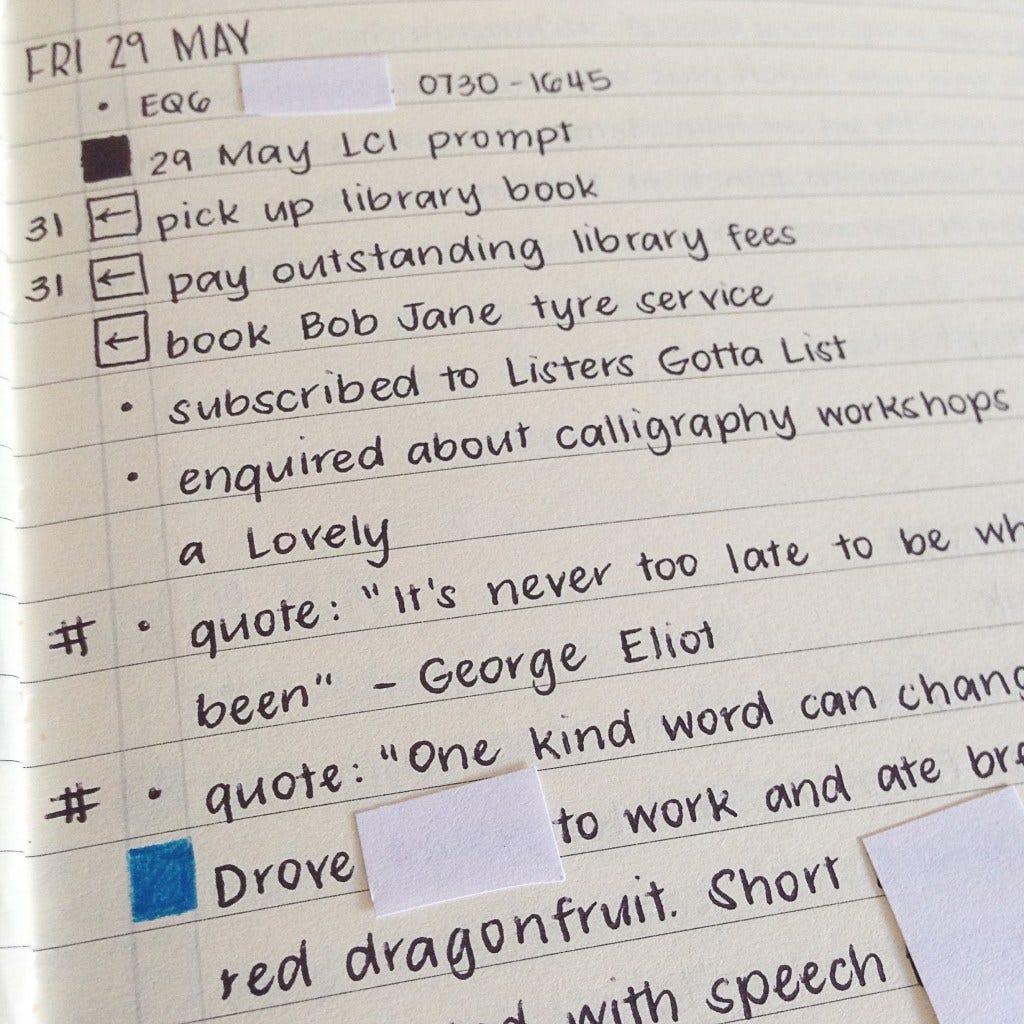 FRI 29 MAY
• EQ6 0730-1645
29 May LCI prompt
31 ← pick up library book
31 ← pay outstanding library fees
← book Bob Jane tyre service
• subscribed to Listers Gotta List
• enquired about calligraphy workshops
a Lovely
# • quote: "It's never too late to be
been" - George Eliot
# • quote: "One kind word can
Drove to work and ate
red dragonfruit. Short
with speech